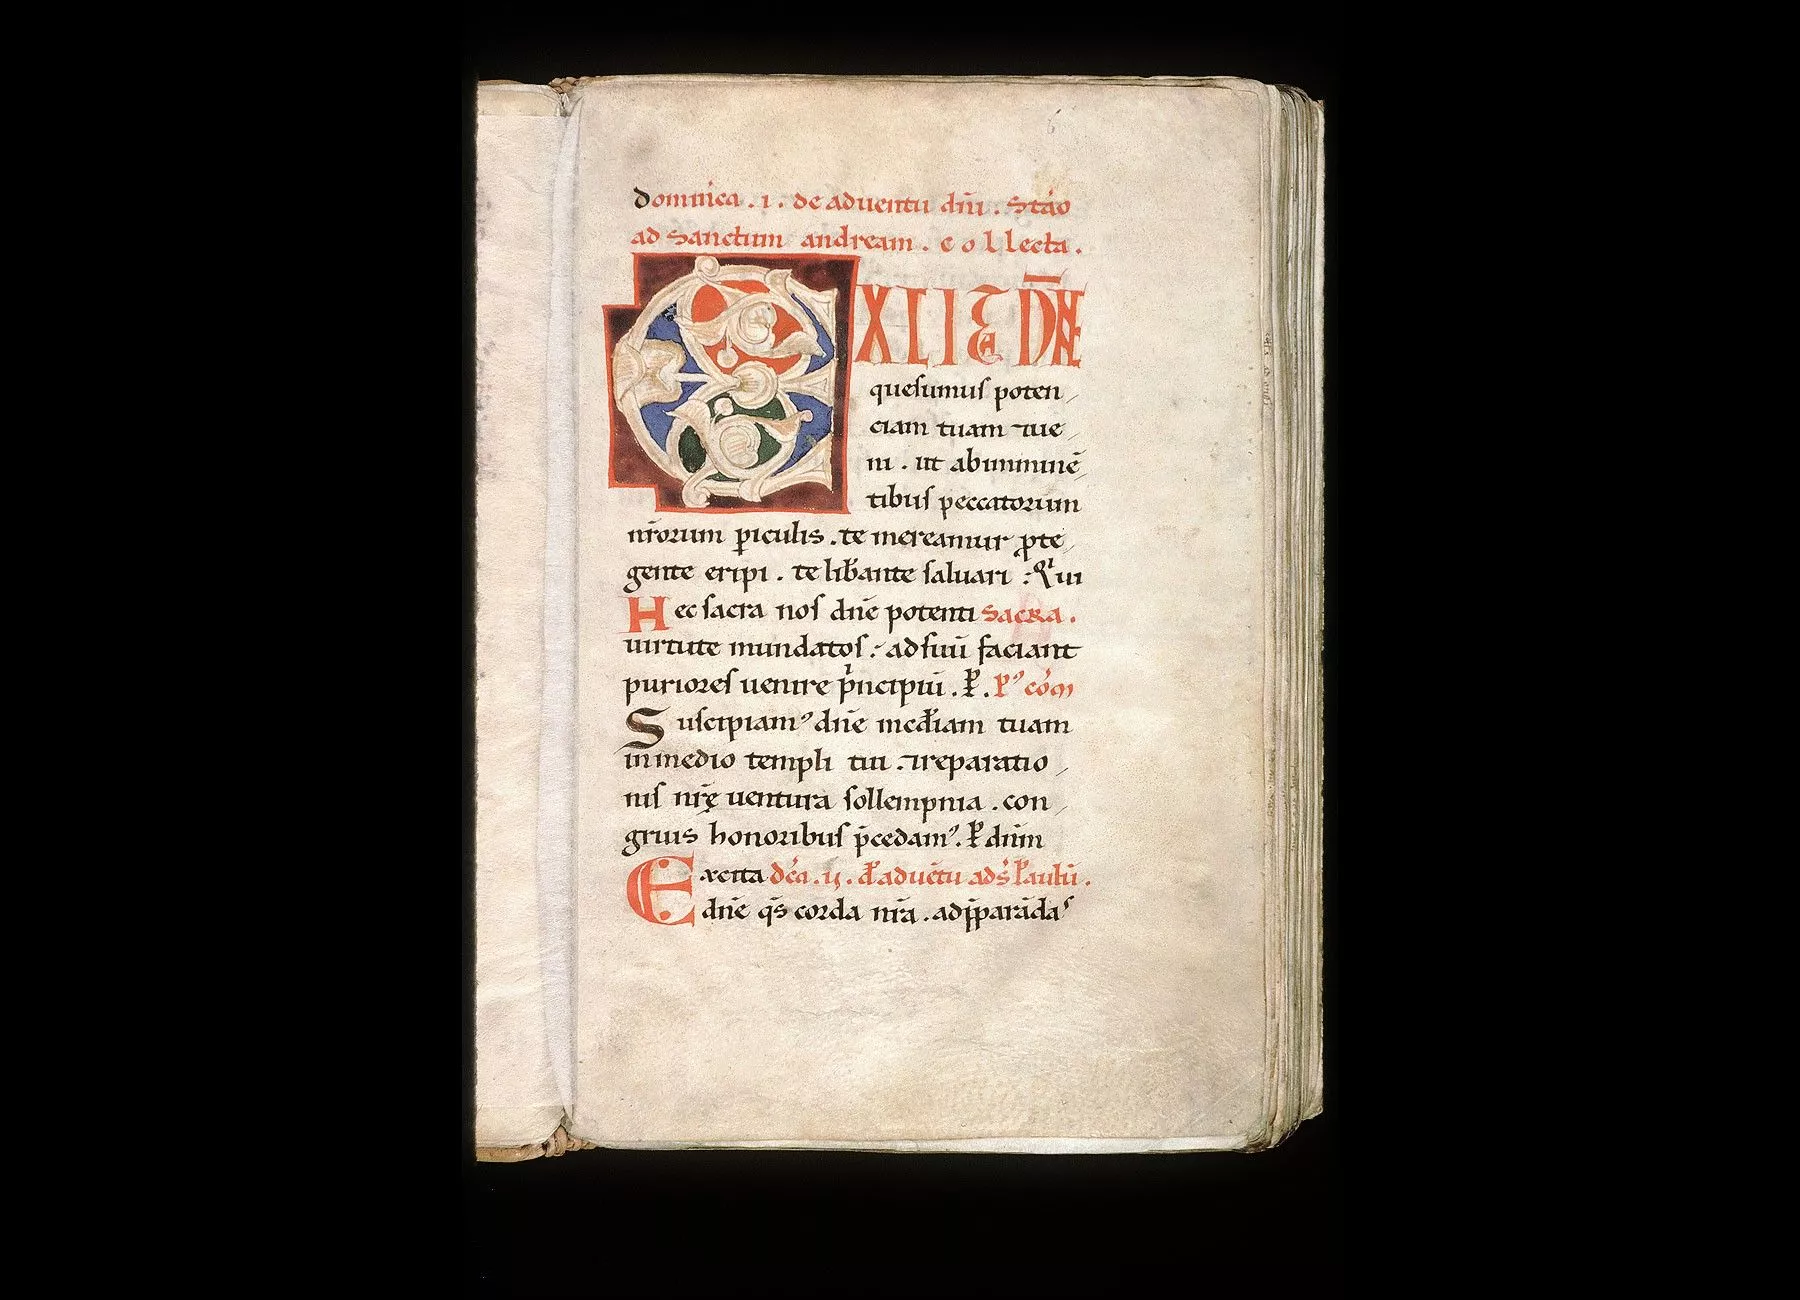 domnica . i . de aduentu dn̄i . Stāo
ad Sanctum andream . collecta .
EXCITA DN̄E
quesumus poten
ciam tuam ⁊ ue
ni . ut ab inminē
tibus peccatorum
nr̄orum ꝑiculis . te mereamur ꝓte
gente eripi . te lib̄ante saluari . Qui
Hec sacra nos dn̄e potenti Sacra .
uirtute mundatos . ad suū faciant
puriores uenire p̄ncipiū . P . Pꝰ cōm
Suscipiamꝰ dn̄e mc̄diam tuam
in medio templi tui . ⁊ reparatio
nis nr̄ę uentura sollempnia . con
gruis honoribus p̄cedamꝰ . P dn̄m
Excita dc̄a . ii . d aduētu ad S Paulū .
dn̄e qs̄ corda nr̄a . ad p̄parādas